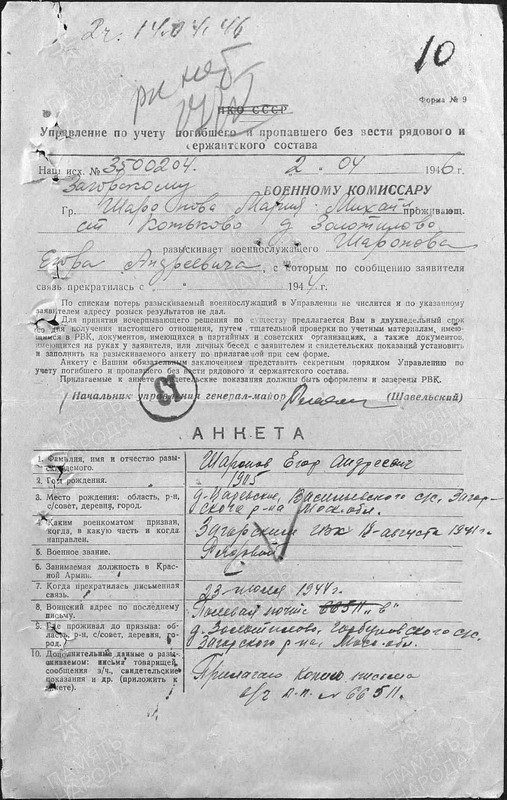 2г. 14.04.46
10
НКО СССР
Форма № 9
Управление по учету погибшего и пропавшего без вести рядового и
сержантского состава
Наш исх. № 3500204. 2. 04 1946 г.
Загорскому ВОЕННОМУ КОМИССАРУ
Гр. Шаронова Мария Михайл проживающ.
ст Коньково д. Золотилово
разыскивает военнослужащего Шаронова
Егора Андреевича, с которым по сообщению заявителя
связь прекратилась с 1944 г.
По спискам потерь разыскиваемый военнослужащий в Управлении не числится и по указанному
заявителем адресу розыск результатов не дал.
Для принятия исчерпывающего решения по существу предлагается Вам в двухнедельный срок
со дня получения настоящего отношения, путем тщательной проверки по учетным материалам, имею-
щимся в РВК, документов, имеющихся в партийных и советских организациях, а также документов,
имеющихся на руках у заявителя, или личных бесед с заявителем и свидетельских показаний установить
и заполнить на разыскиваемого анкету по прилагаемой при сем форме.
Анкету с Вашим обязательным заключением представить секретным порядком Управлению по
учету погибшего и пропавшего без вести рядового и сержантского состава.
Прилагаемые к анкете свидетельские показания должны быть оформлены и заверены РВК.
Начальник управления генерал-майор (Шавельский)
АНКЕТА
1. Фамилия, имя и отчество разы-
скиваемого.
Шаронов Егор Андреевич
2. Год рождения.
1905
3. Место рождения: область, р-н,
с/совет, деревня, город.
Васильевского с/с. Загор-
ского р-на Моск.обл.
4. Каким военкоматом призван,
когда, в какую часть и когда
направлен.
Загорским 18-августа 1941 г.
5. Военное звание.
Рядовой
6. Занимаемая должность в Крас-
ной Армии.
7. Когда прекратилась письменная
связь.
23-июля 1944 г.
8. Воинский адрес по последнему
письму.
Полевая почта 66511 "в"
9. Где проживал до призыва: об-
ласть, р-н, с/совет, деревня, го-
род.
д. Золотилово с/с.
Загорского р-на. Моск.обл.
10. Дополнительные данные о разы-
скиваемом: письма товарищей,
сообщения в/ч., свидетельские
показания и др. (приложить к
анкете).
Прилагаю копию письма
в/ч п.п. № 66511.
ПАМЯТЬ
НАРОДА